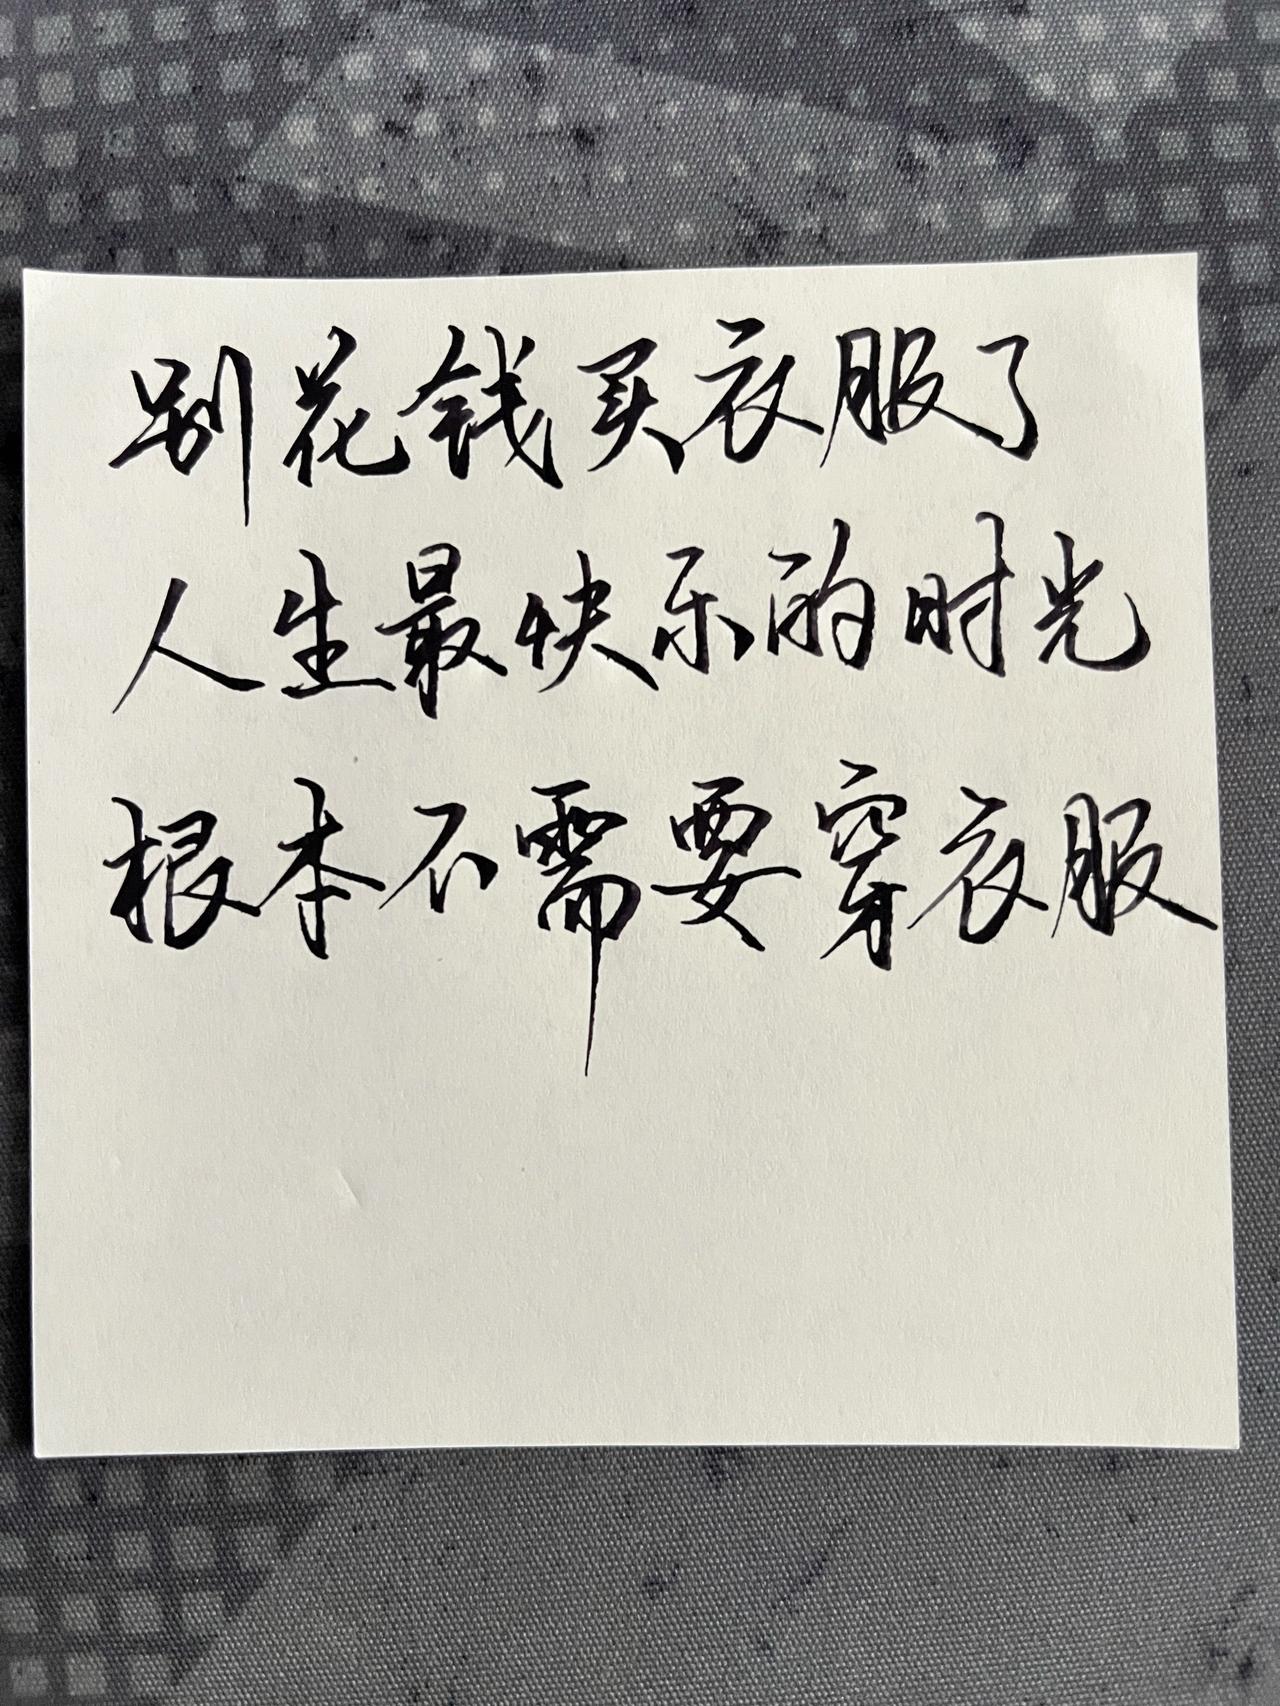 别花钱买衣服了
人生最快乐的时光
根本不需要穿衣服